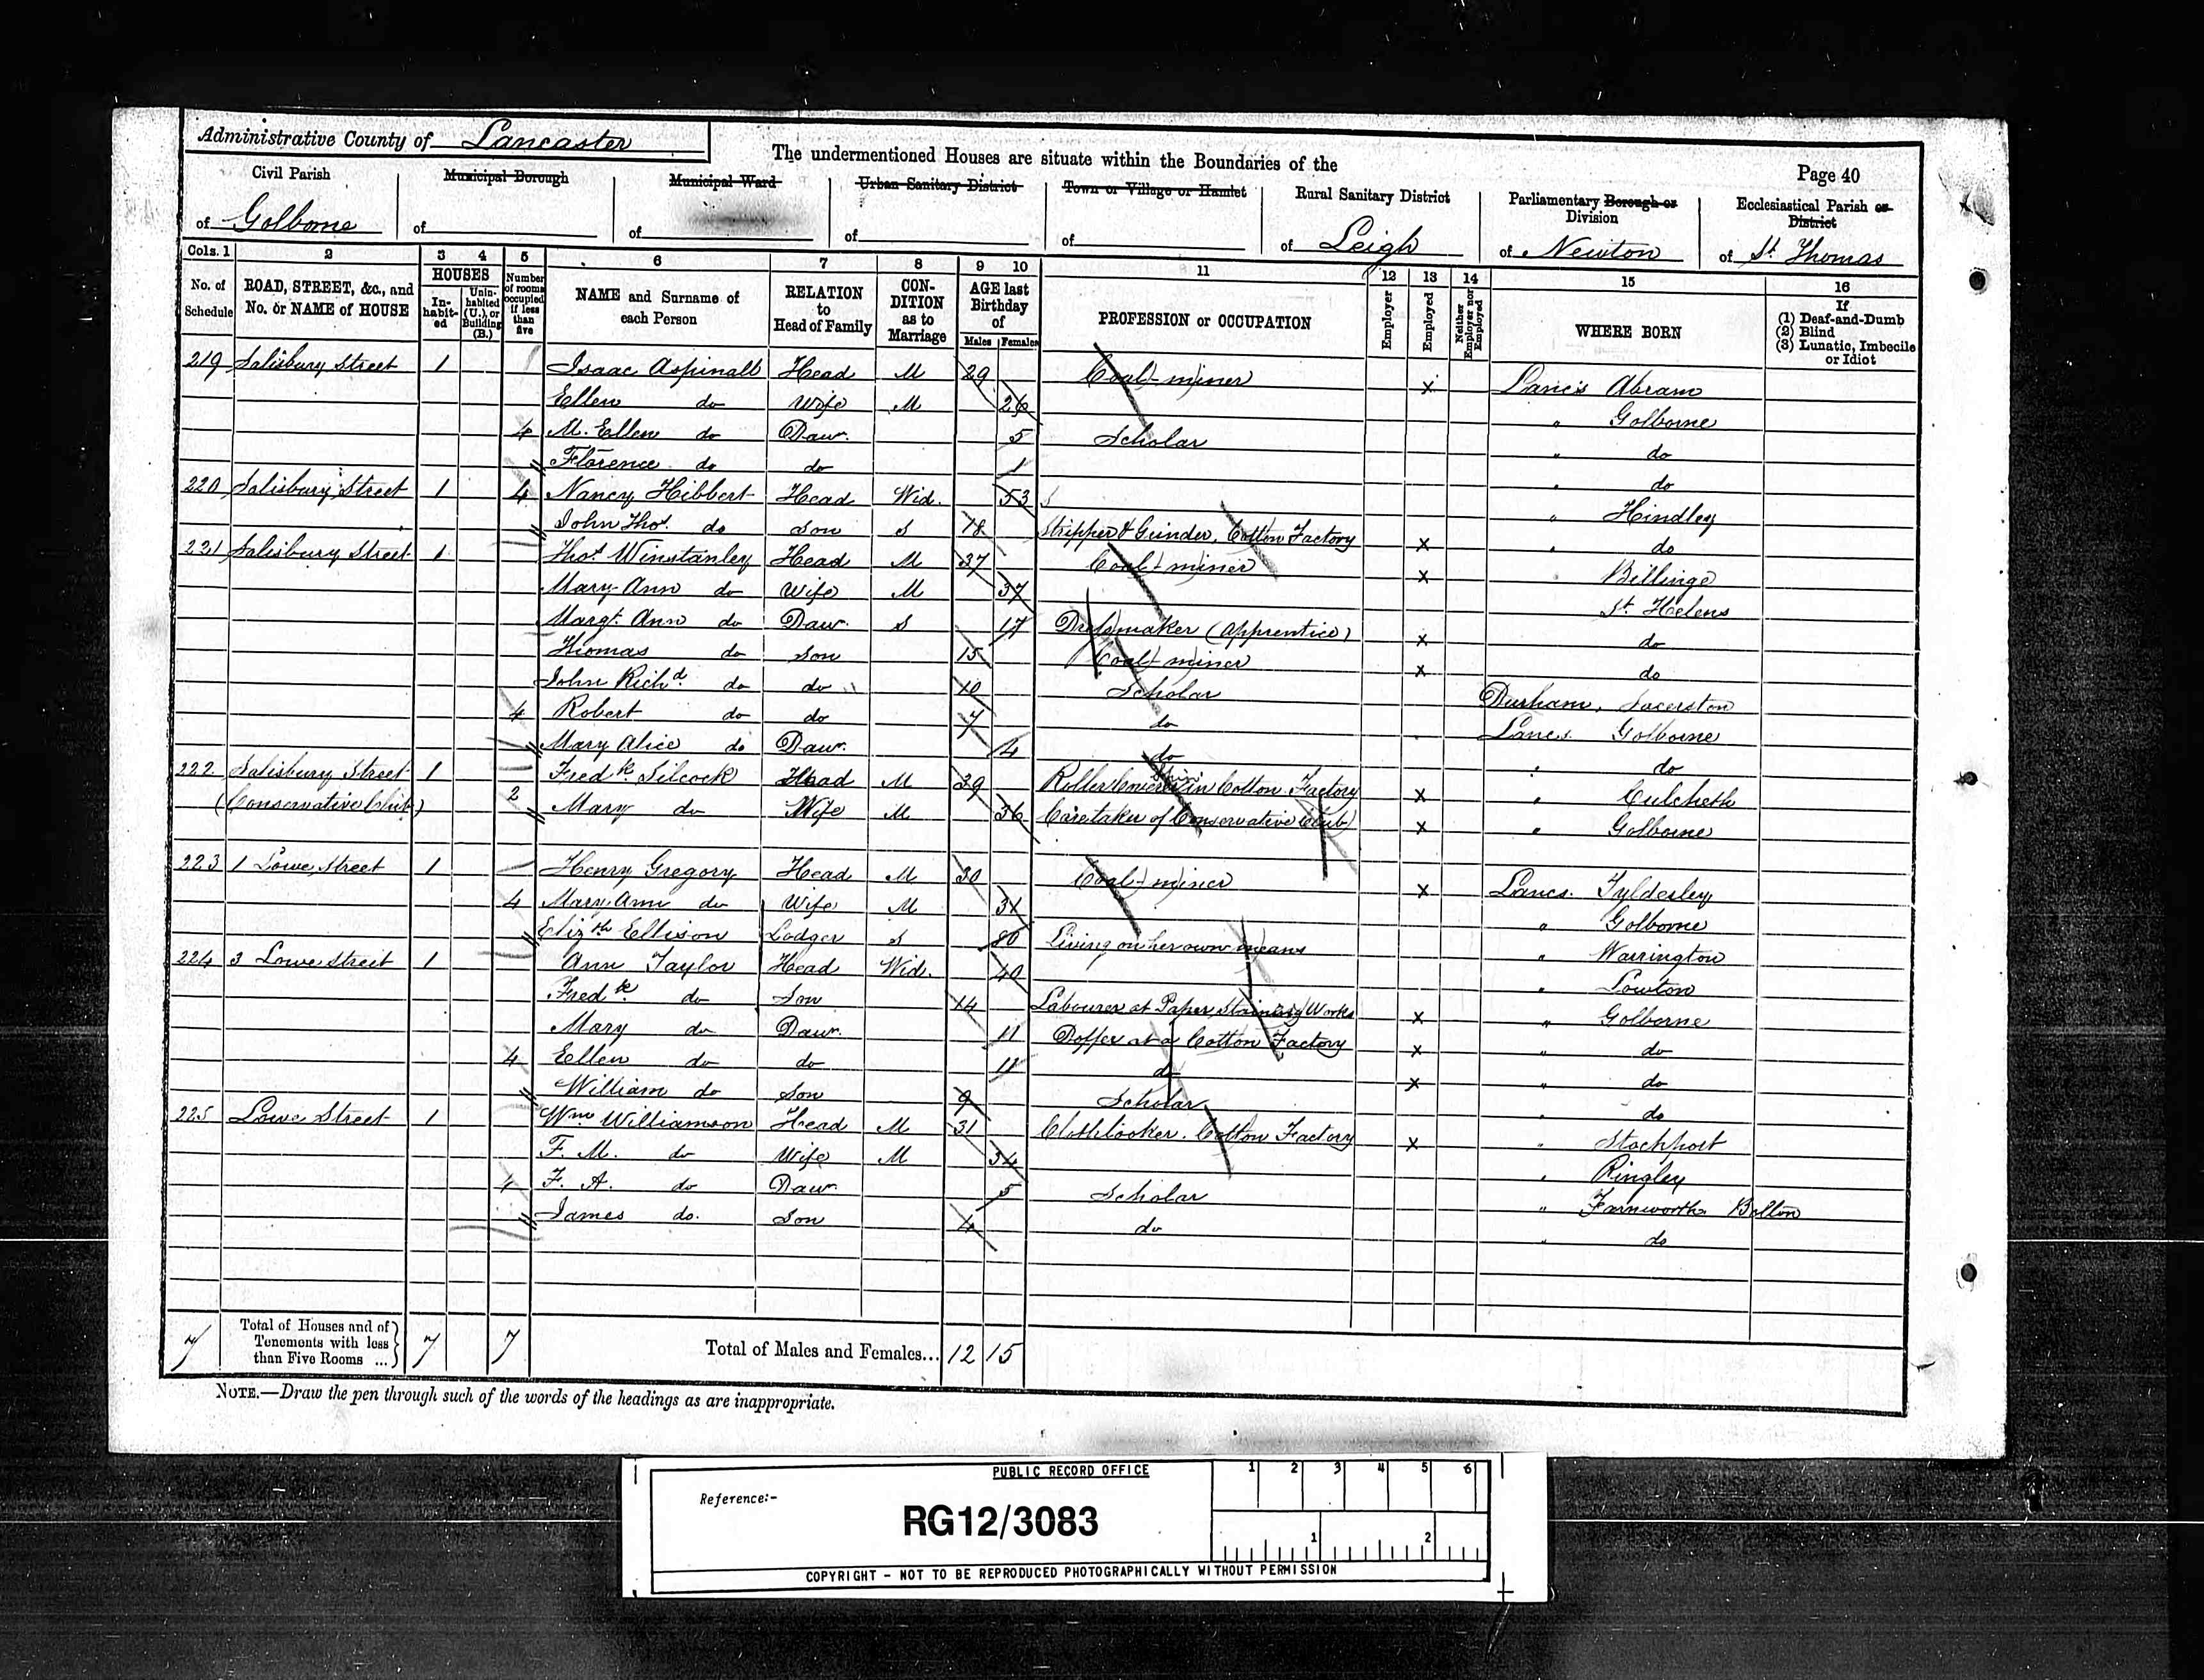 Administrative County of Lancaster
The undermentioned Houses are situate within the Boundaries of the
Page 40
Civil Parish of Golborne
Municipal Borough of
Municipal Ward of
Urban Sanitary District of
Town or Village or Hamlet of
Rural Sanitary District of Leigh
Parliamentary Borough or Division of Newton
Ecclesiastical Parish or District of St. Thomas
Cols. 1 2 3 4 5 6 7 8 9 10 11 12 13 14 15 16
No. of Schedule
ROAD, STREET, &c., and No. or NAME of HOUSE
HOUSES
Inhabited
Uninhabited (U.), or Building (B.)
Number of rooms occupied if less than five
NAME and Surname of each Person
RELATION to Head of Family
CONDITION as to Marriage
AGE last Birthday of
Males Females
PROFESSION or OCCUPATION
Employer
Employed
Neither Employer nor Employed
WHERE BORN
If (1) Deaf-and-Dumb (2) Blind (3) Lunatic, Imbecile or Idiot
219 Salisbury Street 1 Isaac Aspinall Head M 29 Coal-miner x Lancs Abram
Ellen do Wife M 26 " Golborne
4 M. Ellen do Daur. 5 Scholar " do
Florence do do 1 " do
220 Salisbury Street 1 4 Nancy Hibbert Head Wid. 53 " Hindley
John Thos. do Son S 18 Stripper & Grinder, Cotton Factory x " do
221 Salisbury Street 1 Thos. Winstanley Head M 37 Coal-miner x Billinge
Mary Ann do Wife M 37 St. Helens
Margt. Ann do Daur. S 17 Dressmaker (Apprentice) x do
Thomas do Son 15 Coal-miner x do
John Richd. do do 10 Scholar Durham, Sacerston
4 Robert do do 7 do Lancs. Golborne
Mary Alice do Daur. 4 do " do
222 Salisbury Street 1 Fredk. Silcock Head M 39 Roller Coverer in Cotton Factory x " Culcheth
(Conservative Club) 2 Mary do Wife M 36 Caretaker of Conservative Club) x " Golborne
223 1 Lowe Street 1 Henry Gregory Head M 30 Coal-miner x Lancs. Tyldesley
4 Mary Ann do Wife M 31 " Golborne
Elizth Ellison Lodger S 80 Living on her own means " Warrington
224 3 Lowe Street 1 Ann Taylor Head Wid. 40 " Lowton
Fredk. do Son 14 Labourer at Paper Staining Works x " Golborne
Mary do Daur. 11 Doffer at a Cotton Factory x " do
4 Ellen do do 11 do x " do
William do Son 9 Scholar " do
225 Lowe Street 1 Wm Williamson Head M 31 Clothlooker. Cotton Factory x " Stockport
F. M. do Wife M 34 " Ringley
4 F. A. do Daur. 5 Scholar " Farnworth Bolton
James do. Son 4 do " do
7 Total of Houses and of Tenements with less than Five Rooms ... 7 7 Total of Males and Females... 12 15
NOTE.—Draw the pen through such of the words of the headings as are inappropriate.
PUBLIC RECORD OFFICE
1 2 3 4 5 6
Reference:-
RG12/3083
1 2
COPYRIGHT - NOT TO BE REPRODUCED PHOTOGRAPHICALLY WITHOUT PERMISSION